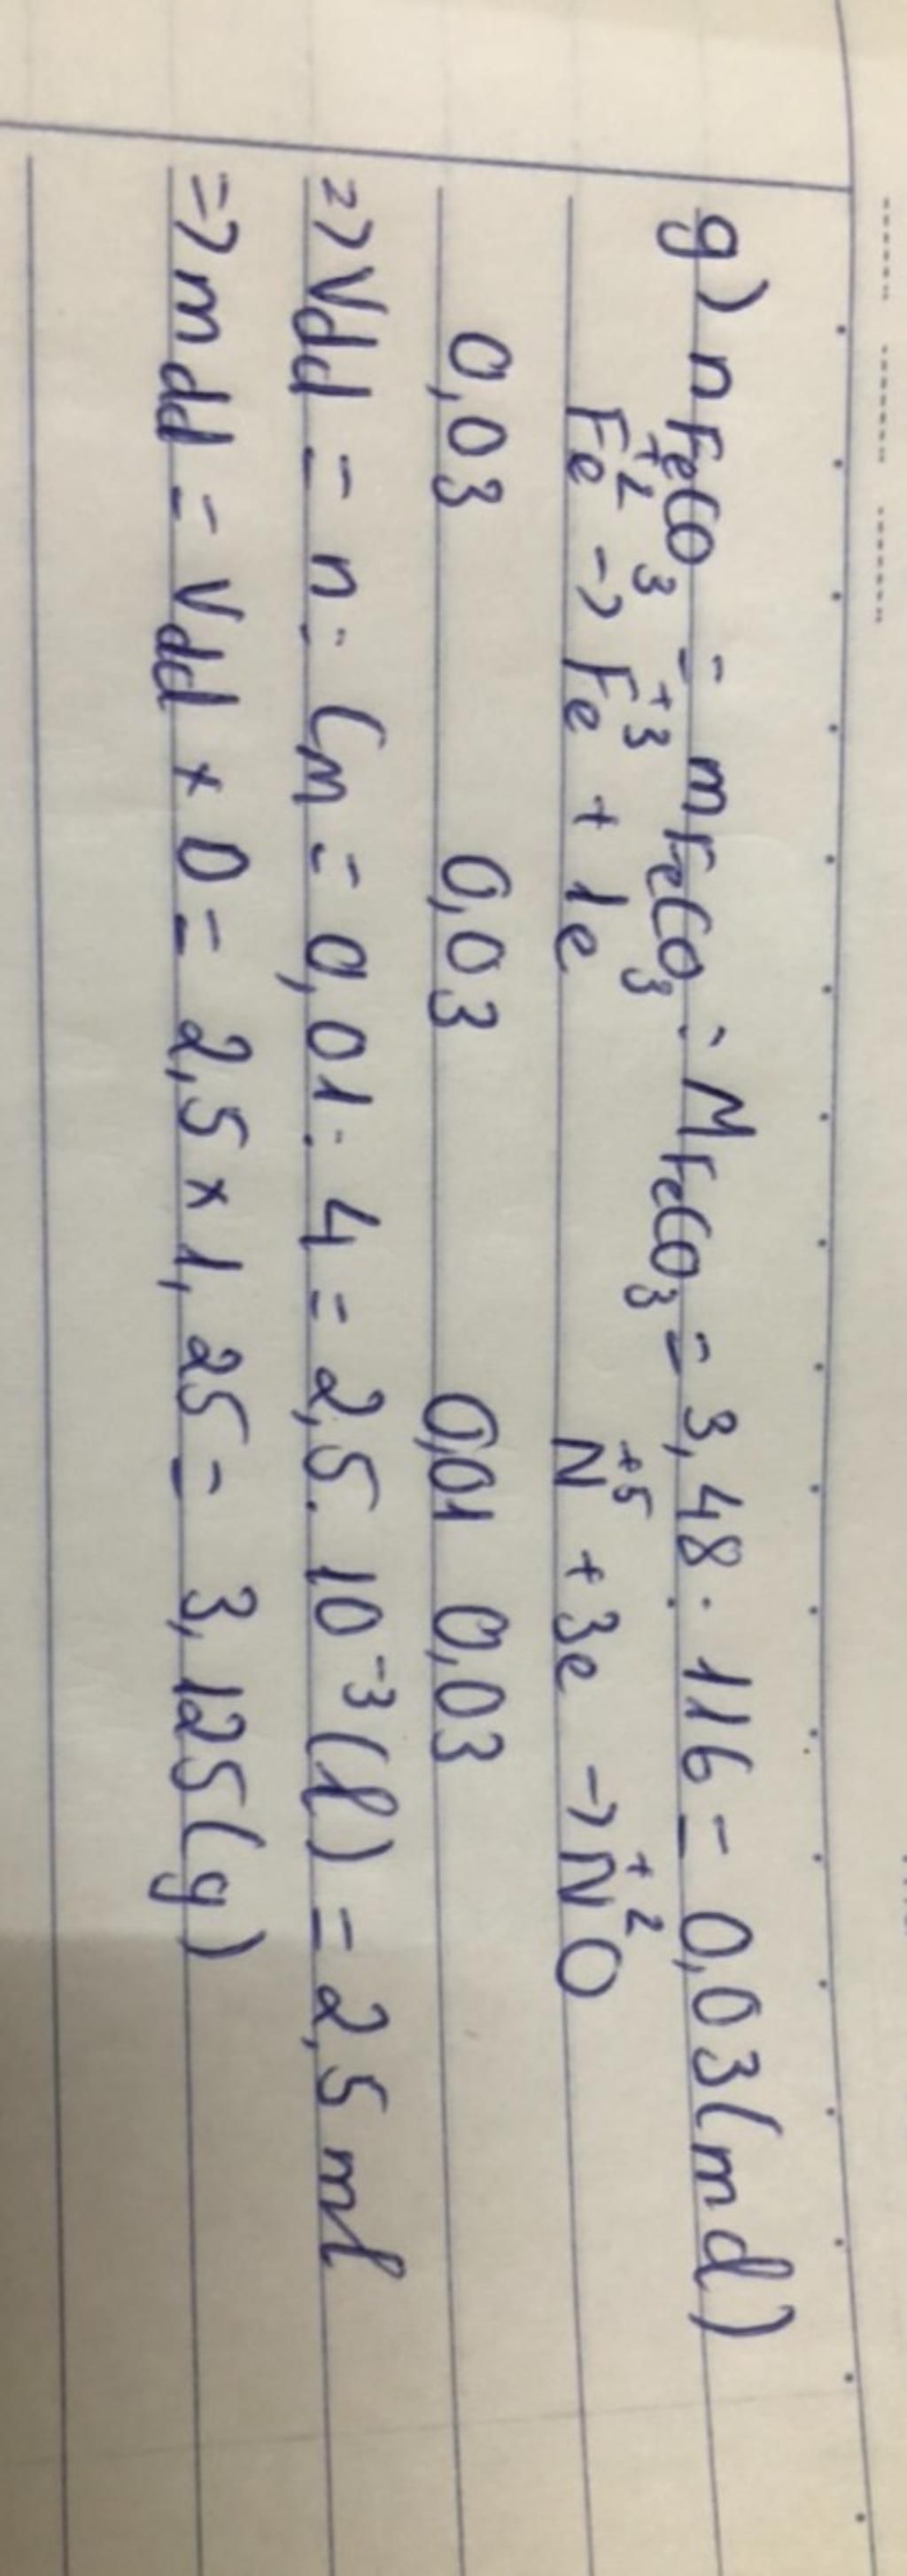 g) nFeCO3 = mFeCO3 : MFeCO3 = 3,48 : 116 = 0,03 (mol)
Fe+2 -> Fe+3 + 1e N+5 + 3e -> N+2O
0,03 0,03 0,01 0,03
=> Vdd = n : CM = 0,01 : 4 = 2,5 . 10-3 (l) = 2,5 ml
=> mdd = Vdd × D = 2,5 × 1,25 = 3,125 (g)